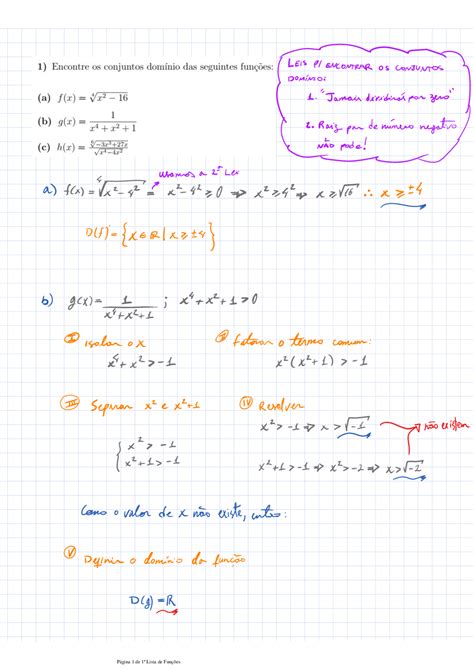 1) Encontre os conjuntos domínio das seguintes funções:
(a) f(x) = ∜(x² − 16)
(b) g(x) = 1/(x⁴ + x² + 1)
(c) h(x) =
LEIS P/ ENCONTRAR OS CONJUNTOS
DOMÍNIO:
1. "Jamais dividirás por zero"
2. Raiz par de número negativo
não pode!
usamos a 2ª Lei
a) f(x) = ∜(x² − 4²) = x² − 4² ≥ 0 ⇒ x² ≥ 4² ⇒ x ≥ √16 ∴ x ≥ ±4
D(f) = {x ∈ ℝ | x ≥ ±4}
b) g(x) = 1/(x⁴ + x² + 1) ; x⁴ + x² + 1 > 0
I isolar o x
x⁴ + x² > −1
II Fatorar o termo comum:
x²(x² + 1) > −1
III Separar x² e x² + 1
{ x² > −1
x² + 1 > −1
IV Resolver
x² > −1 ⇒ x > √−1
não existem
x² + 1 > −1 ⇒ x² > −2 ⇒ x > √−2
Como o valor de x não existe, então:
V Definir o domínio da função
D(g) = ℝ
Página 1 de 1ª Lista de Funções